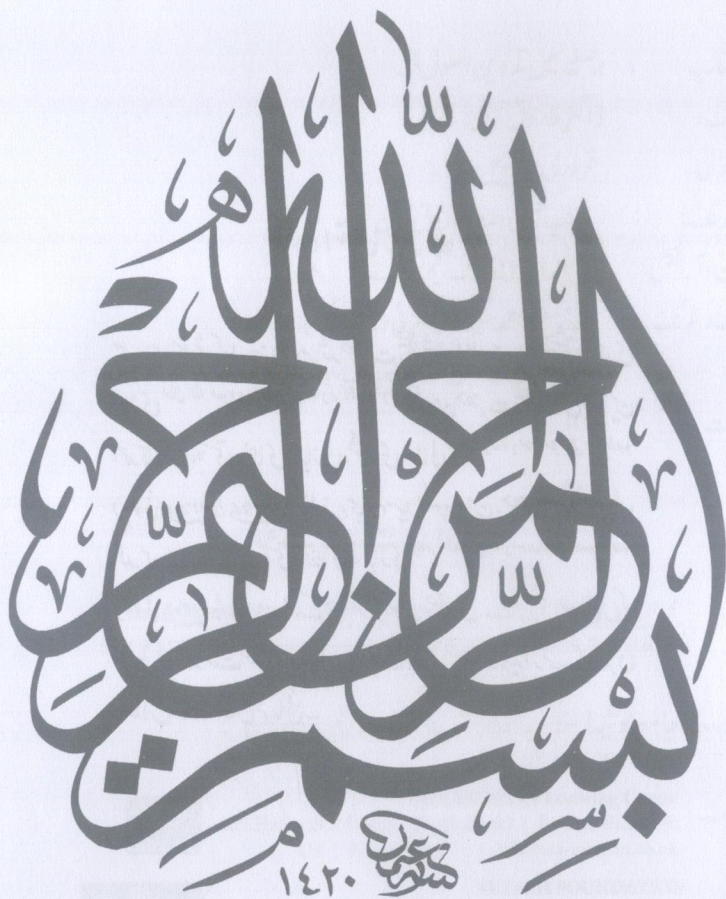 بِسْمِ اللّٰهِ الرَّحْمٰنِ الرَّحِيْمِ
١٤٢٠